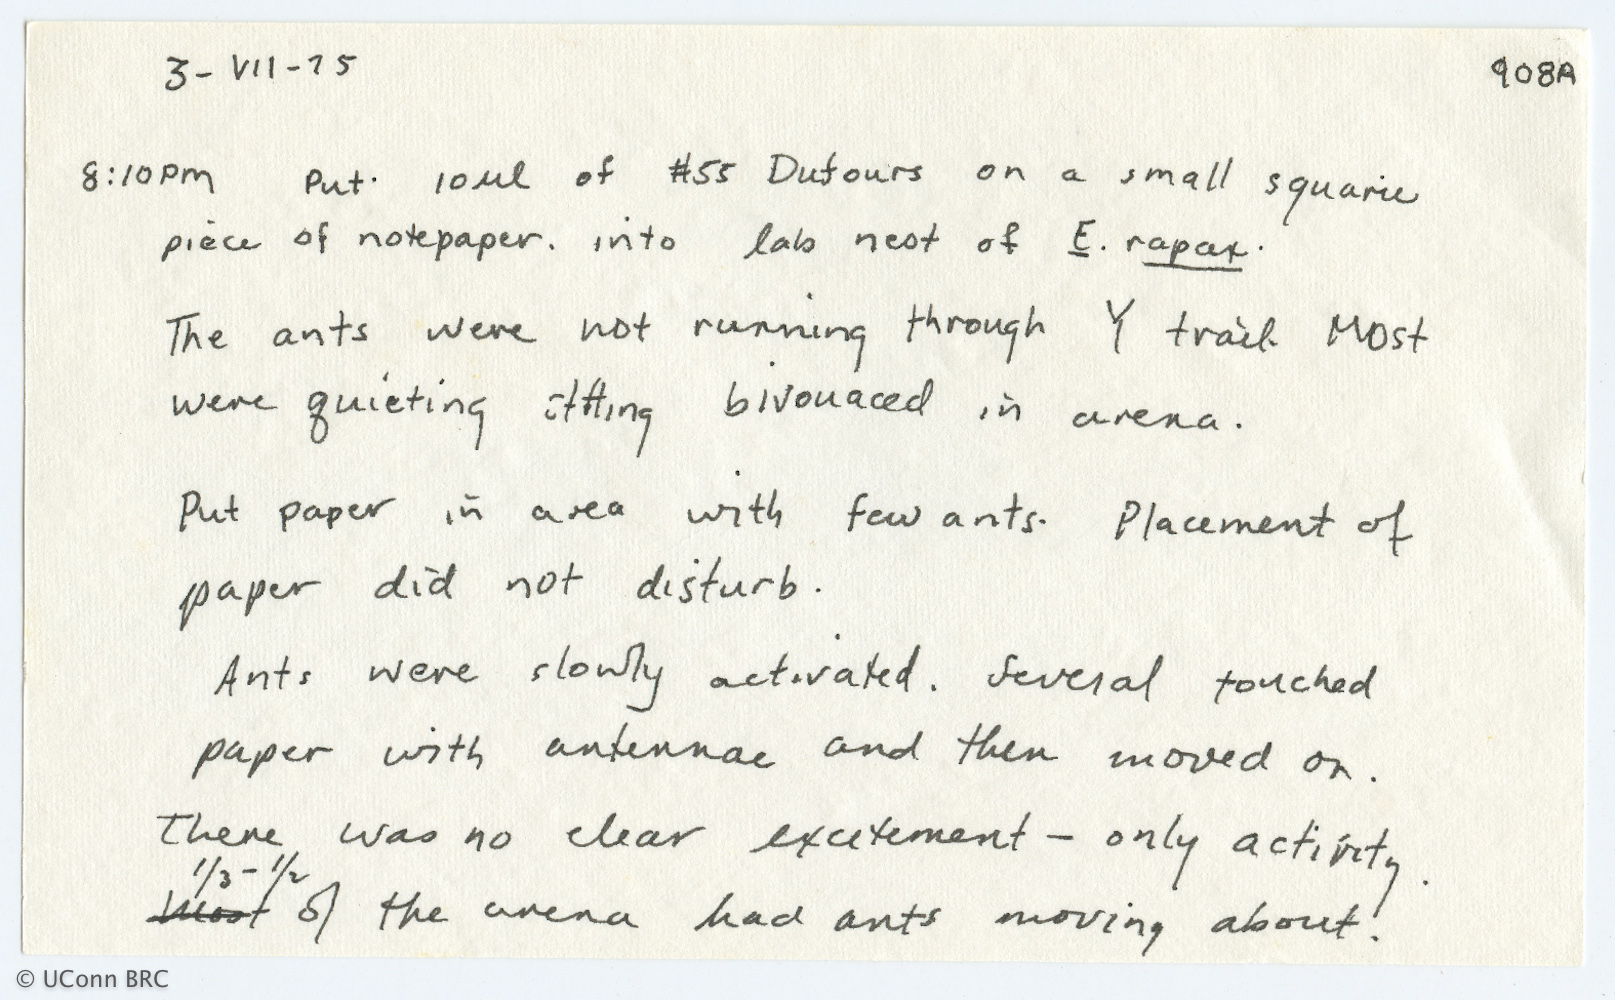 3-VII-75
908A
8:10pm Put 10ul of #55 Dufours on a small square
piece of notepaper. into lab nest of E. rapax.
The ants were not running through Y trail. Most
were quieting sitting bivouaced in arena.
Put paper in area with few ants. Placement of
paper did not disturb.
Ants were slowly activated. Several touched
paper with antennae and then moved on.
There was no clear excitement - only activity.
1/3-1/2
Most of the arena had ants moving about.
© UConn BRC